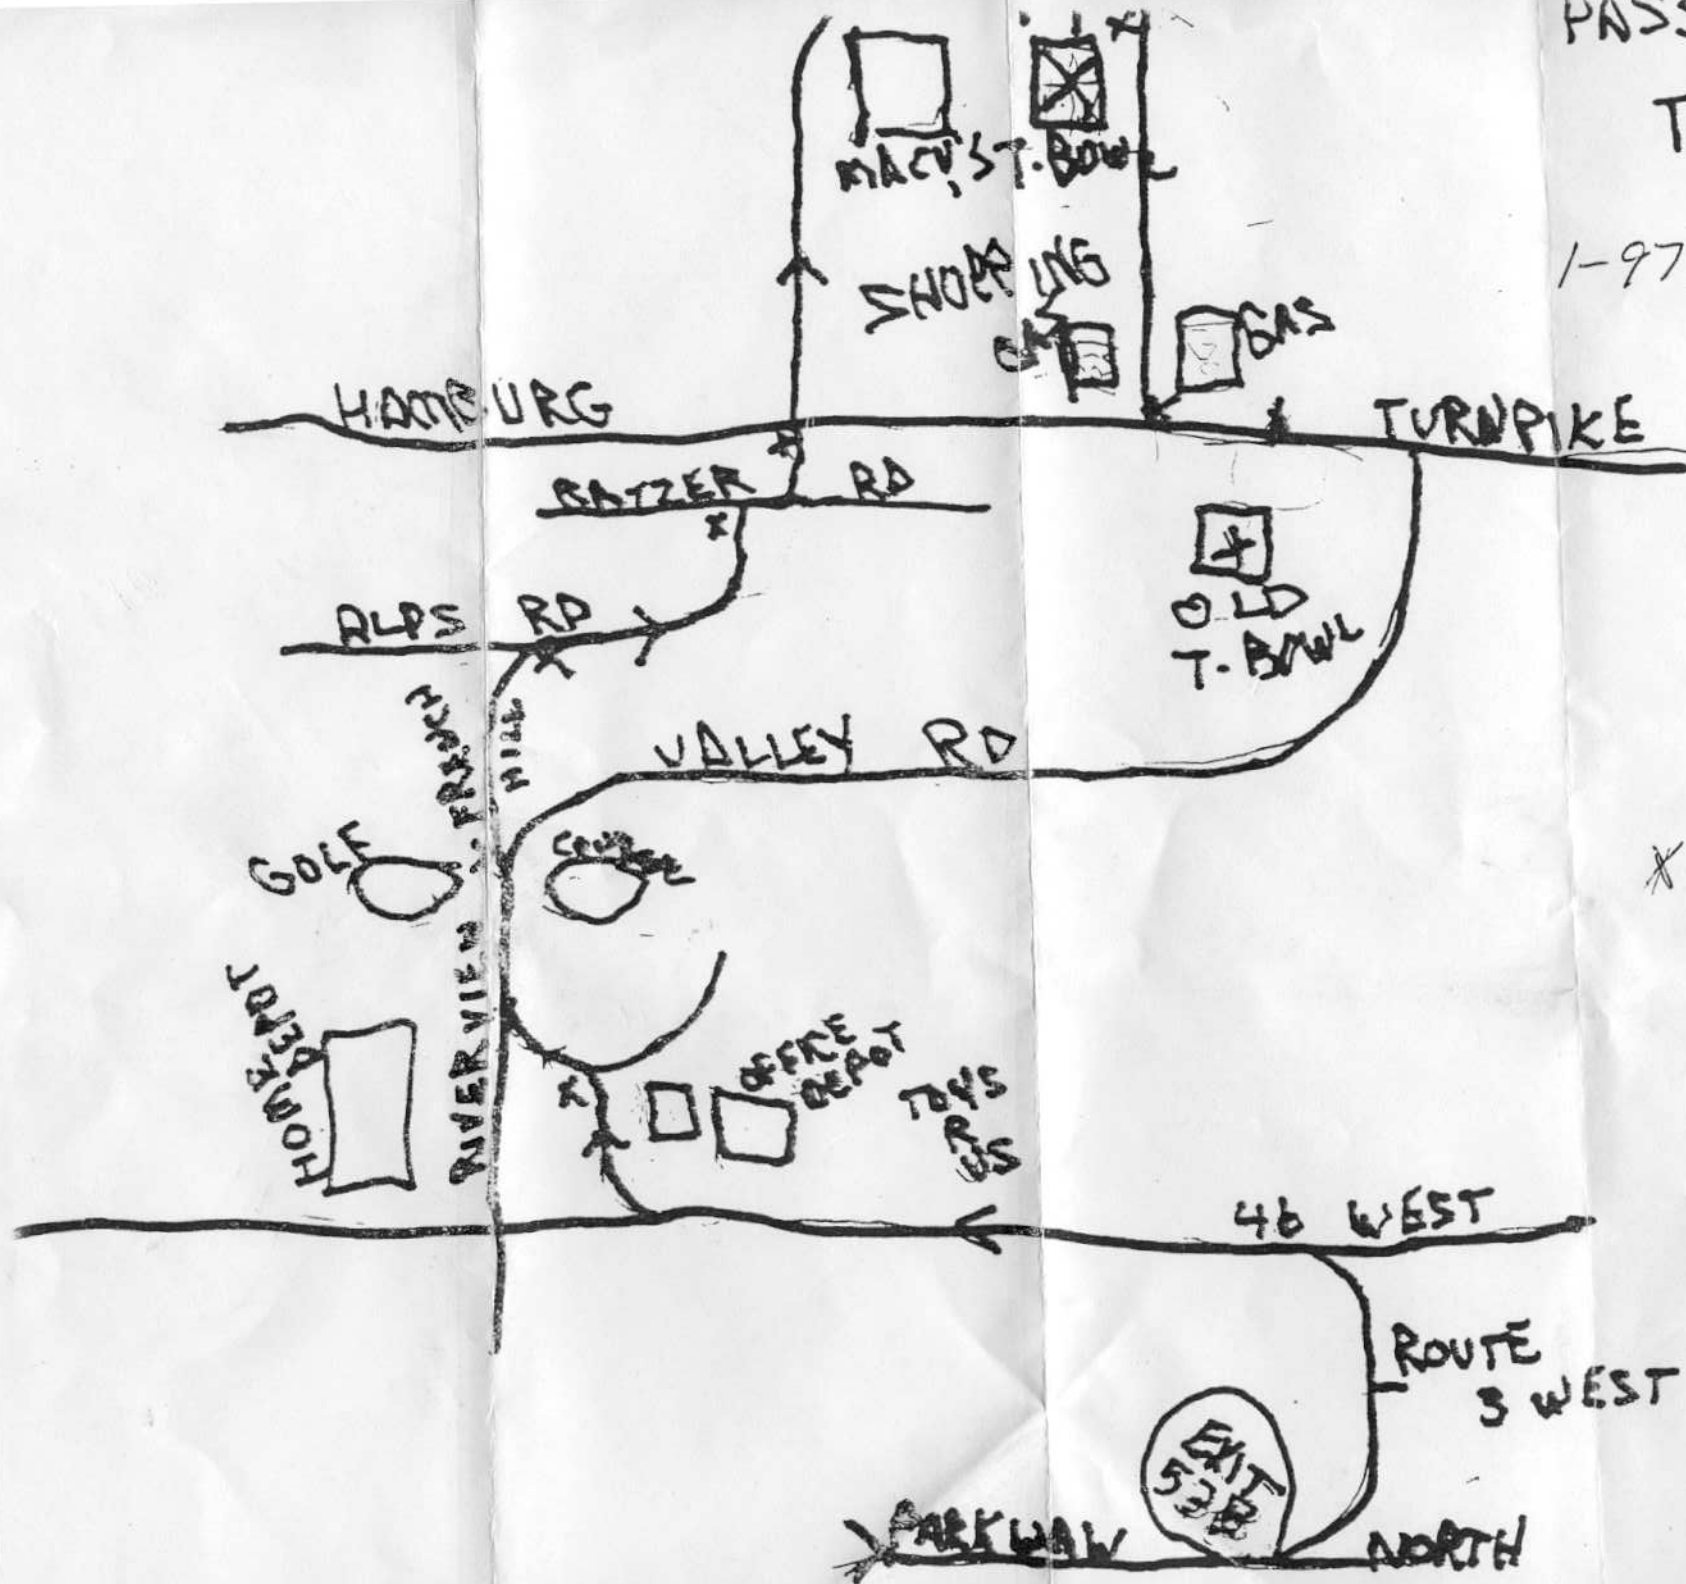 PASS
T
MACY'S T-BOWL
1-97
SHOPPING
GAS
GAS
HAMBURG TURNPIKE
RATZER RD
OLD
T-BOWL
ALPS RD
FRENCH HILL
VALLEY RD
GOLF COURSE
RIVERVIEW
HOME DEPOT
OFFICE
DEPOT
TOYS
R
US
46 WEST
ROUTE
3 WEST
EXIT
53B
PARKWAW NORTH